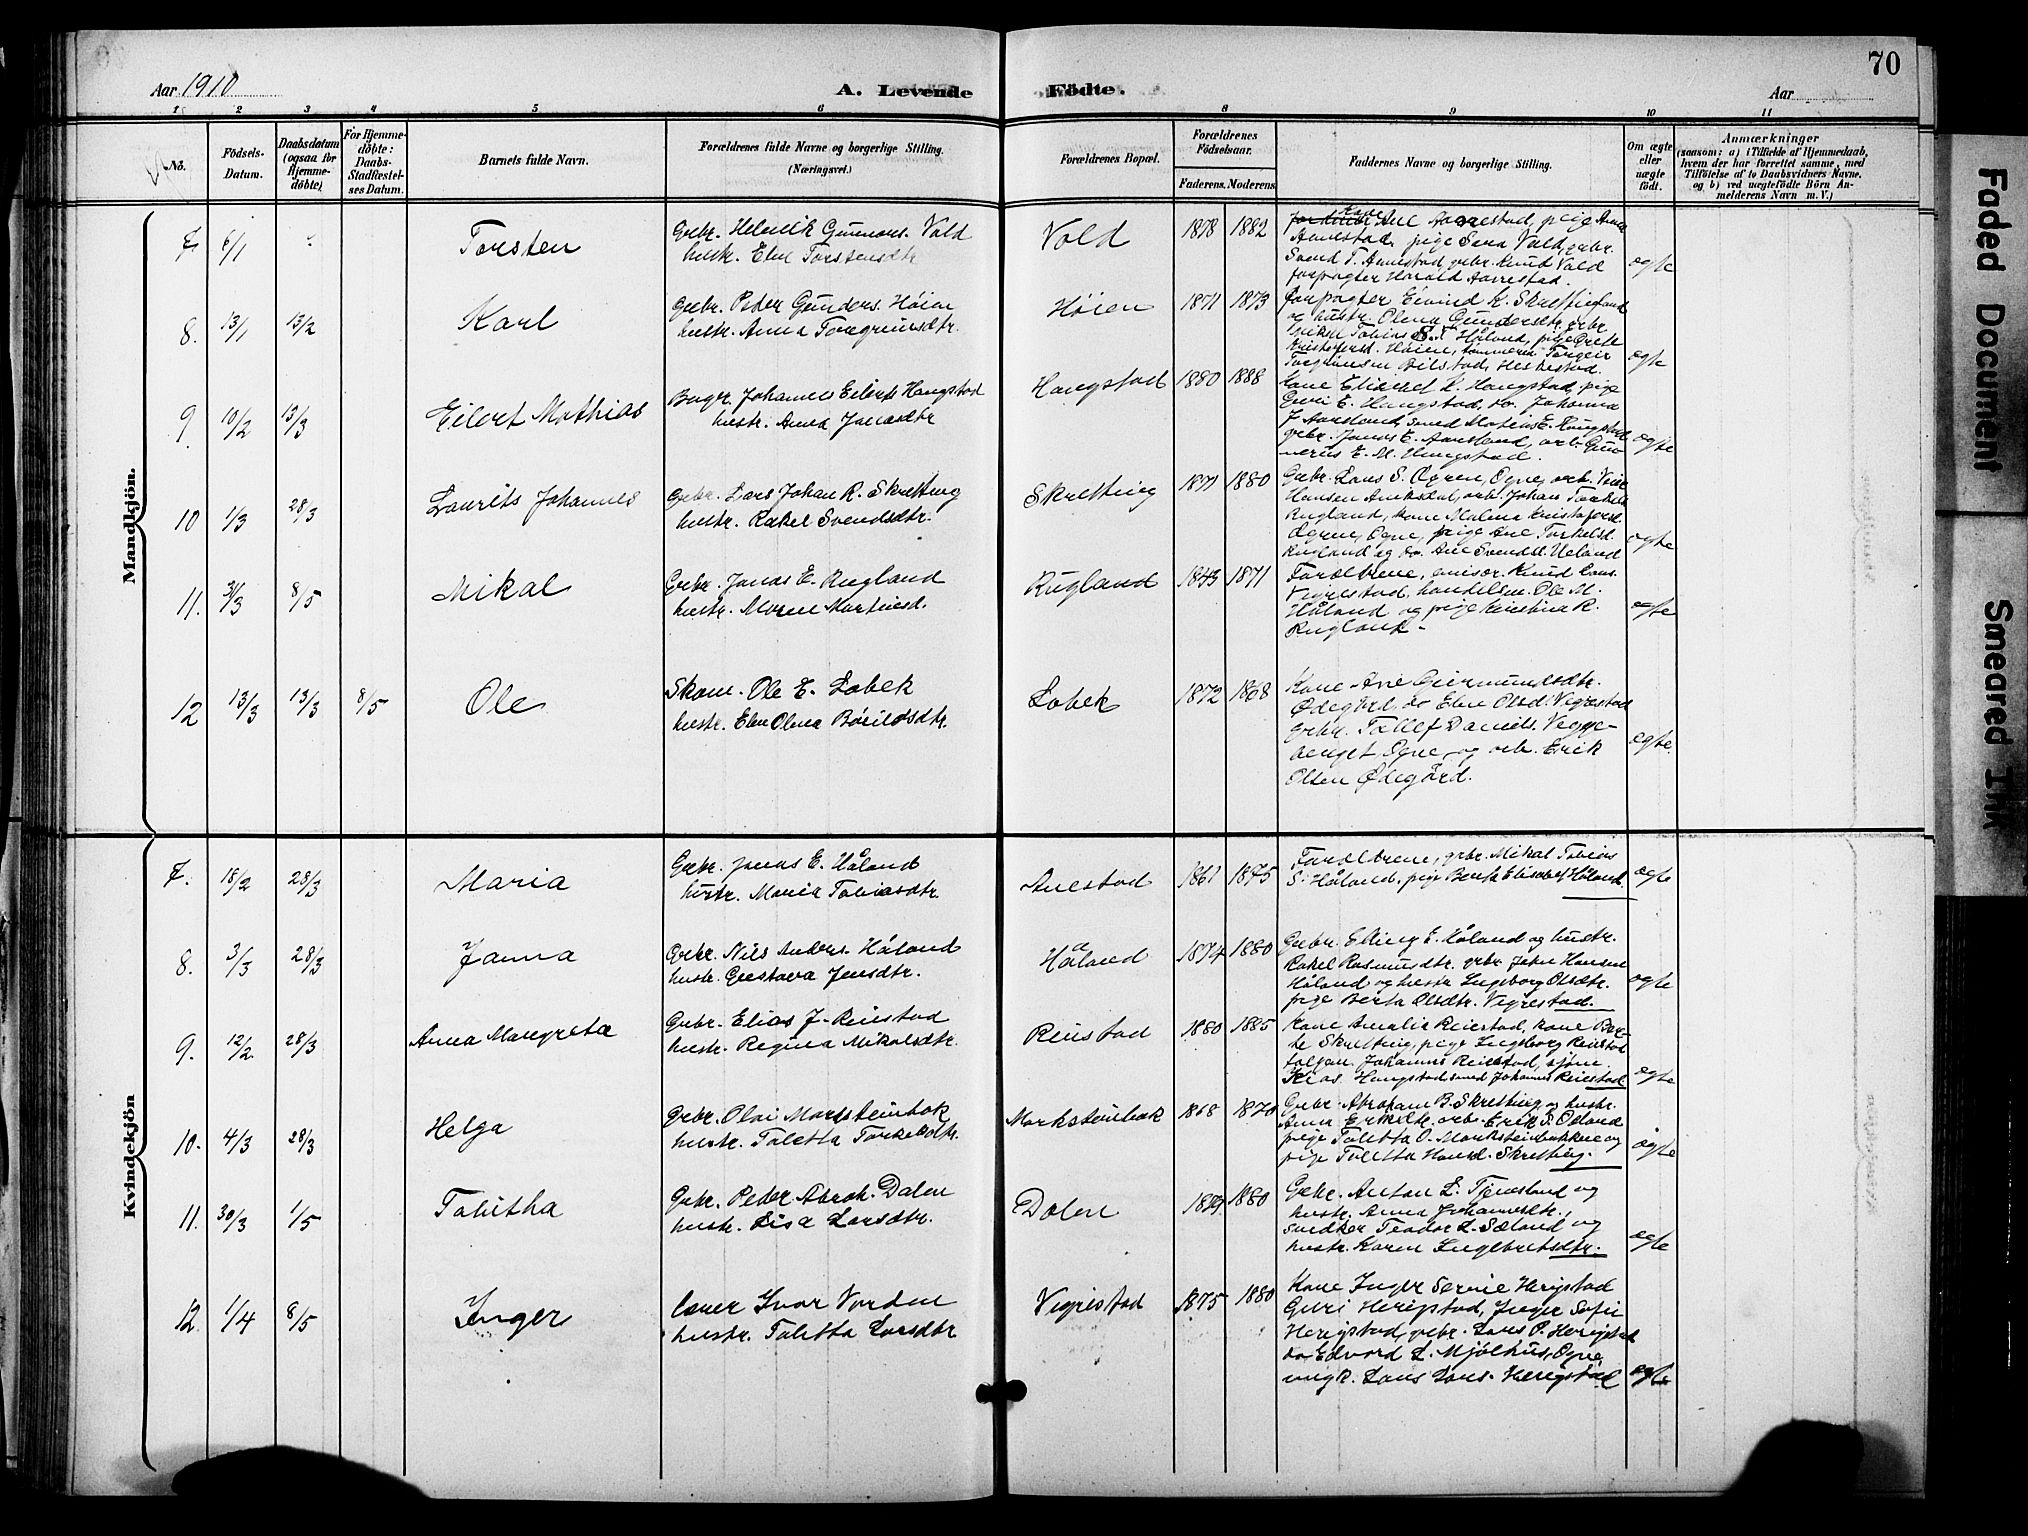 70
Aar 1910
A. Levende
Födte.
Aar
1 2 3 4 5 6 8 9 10 11
No.
Födsels-Datum.
Daabsdatum (ogsaa for Hjemme-döbte)
For Hjemme-döbte: Daabs-Stadfæstel-ses Datum.
Barnets fulde Navn.
Forældrenes fulde Navne og borgerlige Stilling.
(Næringsvei.)
Forældrenes Bopæl.
Forældrenes Födselsaar.
Faderens. Moderens
Faddernes Navne og borgerlige Stilling.
Om ægte eller uægte født.
Anmærkninger
(saasom: a) i Tilfælde af Hjemmedaab,
hvem der har forrettet samme, med
Tilföielse af to Daabsvidners Navne.
og b) ved uægtefödte Börn An-
melderens Navn m. V.)
Mandkjön.
7. 6/1 Torsten
Grbr. Helmik Gunnars. Vold
hustr. Elen Torstensdtr
Vold 1878 1882
Kane Ane Aarrestad, pige Anna
Annestad, pige Sena Vold, grbr.
Svend T. Annestad, grbr. Knud Vold
forpagter Harald Aarrestad.
ægte
8. 13/1 13/2 Karl
Grbr. Peder Gunders. Høien
hustr. Anna Torgrimsdtr.
Høien 1871 1873
forpagter Eivind K. Skrettingland
og hustr. Olena Gundersdtr, grbr.
Mikal Tobias S. Håland, pige Grete
Kristofersd. Høien, tømmerm. Torgeir
Torgrimsen Bilstad, Heskestad.
ægte
9. 10/2 13/3 Eilert Mathias
Bagr. Johannes Eilerts Haugstad
hustr. Anna Jonasdtr
Haugstad 1880 1888
Kane Elisabet K. Haugstad, pige
Guri E. Haugstad, do. Johanna
J. Aarsland, smed Matias E. Haugstad
grbr. Jonas E. Aarsland, arb. Gun-
nerius E. M. Haugstad.
ægte
10 1/3 28/3 Laurits Johannes
Grbr. Lars Johan R. Skretting
hustr. Rakel Svendsdtr.
Skretting 1871 1880
Grbr. Lars S. Ogren, Ogne, arb.
Hansen Aniksdal, arb. Johan Torkels.
Rugland, kone Malena Kristofersd.
Ogren, Ogne, pige Ane Torkelsd.
Rugland og do. Ane Svendsd. Ueland
ægte
11. 31/3 8/5 Mikal
Grbr. Jonas E. Rugland
hustr. Maren Martinsd.
Rugland 1843 1871
Forældrene, emisær Knud Lars.
Vigrestad, handelsm. Ole M.
Håland og pige Kristina R.
Rugland.
ægte
12 13/3 13/3 8/5 Ole
Skom. Ole E. Lobek
hustr. Elen Olena Bårildsdtr.
Lobek 1872 1868
Kane Ane Geirmundsdtr.
Ødegård, do Elen Olsd. Vigrestad
grbr. Tollef Daniels. Vegge-
berget Ogne, og arb. Erik
Olsen Ødegård.
ægte.
Kvindekjön
7. 18/2 28/3 Maria
Grbr. Jonas E. Håland
hustr. Maria Tobiasdtr.
Anestad 1861 1875
Forældrene, grbr. Mikal Tobias
S. Håland, pige Berta Elisabet Håland.
ægte
8. 3/3 28/3 Janna
Grbr. Nils Anders. Håland
hustr. Gustava Jensdtr.
Håland 1874 1880
Grbr. Elling E. Håland og hustr.
Rakel Rasmusdtr. grbr. John Hansen
Håland og hustr Ingeborg Olsdtr.
pige Berta Olsdtr. Vigrestad.
ægte
9. 12/2 28/3 Anna Margreta
Grbr. Elias J. Reiestad
hustr. Regina Mikalsdtr.
Reiestad 1880 1885
Kane Amalia Reiestad, kone Ber-
te Skretting, pige Ingeborg Reiestad
Johannes Reiestad,
Haugstad smed Johannes Reiestad
ægte
10. 4/3 28/3 Helga
Grbr. Olai Marksteinbak
hustr. Taletta Torkelsdtr.
Marksteinbak 1868 1870
Grbr. Abraham B. Skretting og hustr.
Anna Eriksdtr. arb. Erik S. Osland
pige Taletta O. Marksteinbakken og
pige Taletta Hansd. Skretting.
ægte
11. 30/3 1/5 Tabitha
Grbr. Peder Abrah. Dalen
hustr. Lisa Larsdtr.
Dalen 1879 1880
Grbr. Anton L. Tjensland og
hustr. Anna Johannesdtr.,
snedker Teodor L. Sæland og
hustr. Karen Ingebretsdtr.
ægte
12. 1/4 8/5 Inger
Ivar Varden
hustr. Taletta Larsdtr
Vigrestad 1875 1880
Kane Inger Serine Herigstad
Guri Herigstad, Inger Sofie
Herigstad, grbr. Lars O. Herigstad
do Edvard L. Mjølhus, Ogne,
ungk. Lars Lars. Herigstad
ægte
Faded Document
Smeared Ink